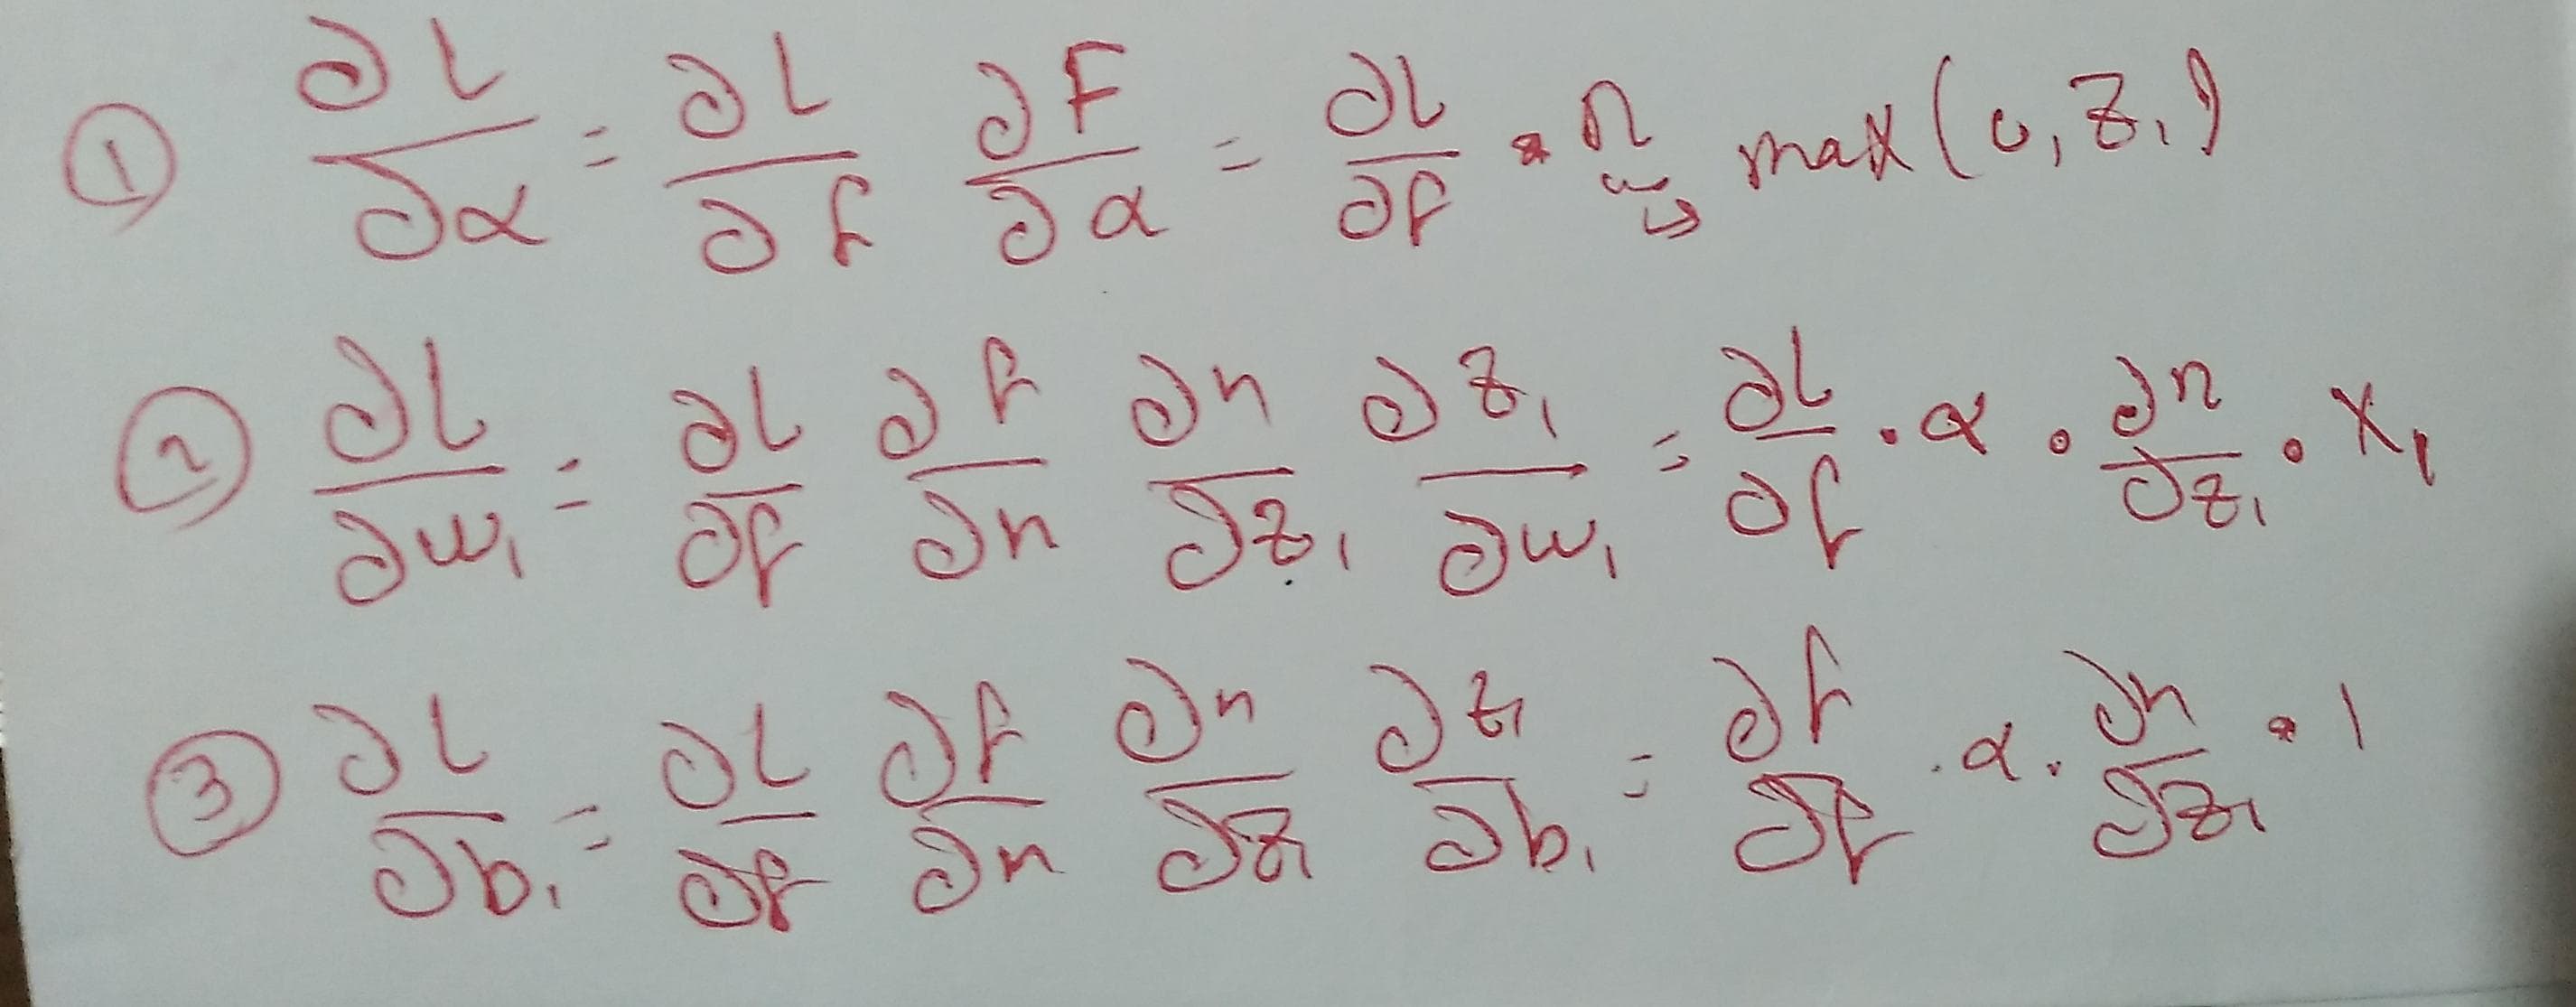 ① ∂l/∂α = ∂l/∂f ∂F/∂α = ∂l/∂f • n → max(0, z₁)
② ∂l/∂w₁ = ∂l/∂f ∂f/∂n ∂n/∂z₁ ∂z₁/∂w₁ = ∂l/∂f • α • ∂n/∂z₁ • x₁
③ ∂l/∂b₁ = ∂l/∂f ∂f/∂n ∂n/∂z₁ ∂z₁/∂b₁ = ∂f/∂f • α • ∂n/∂z₁ • 1